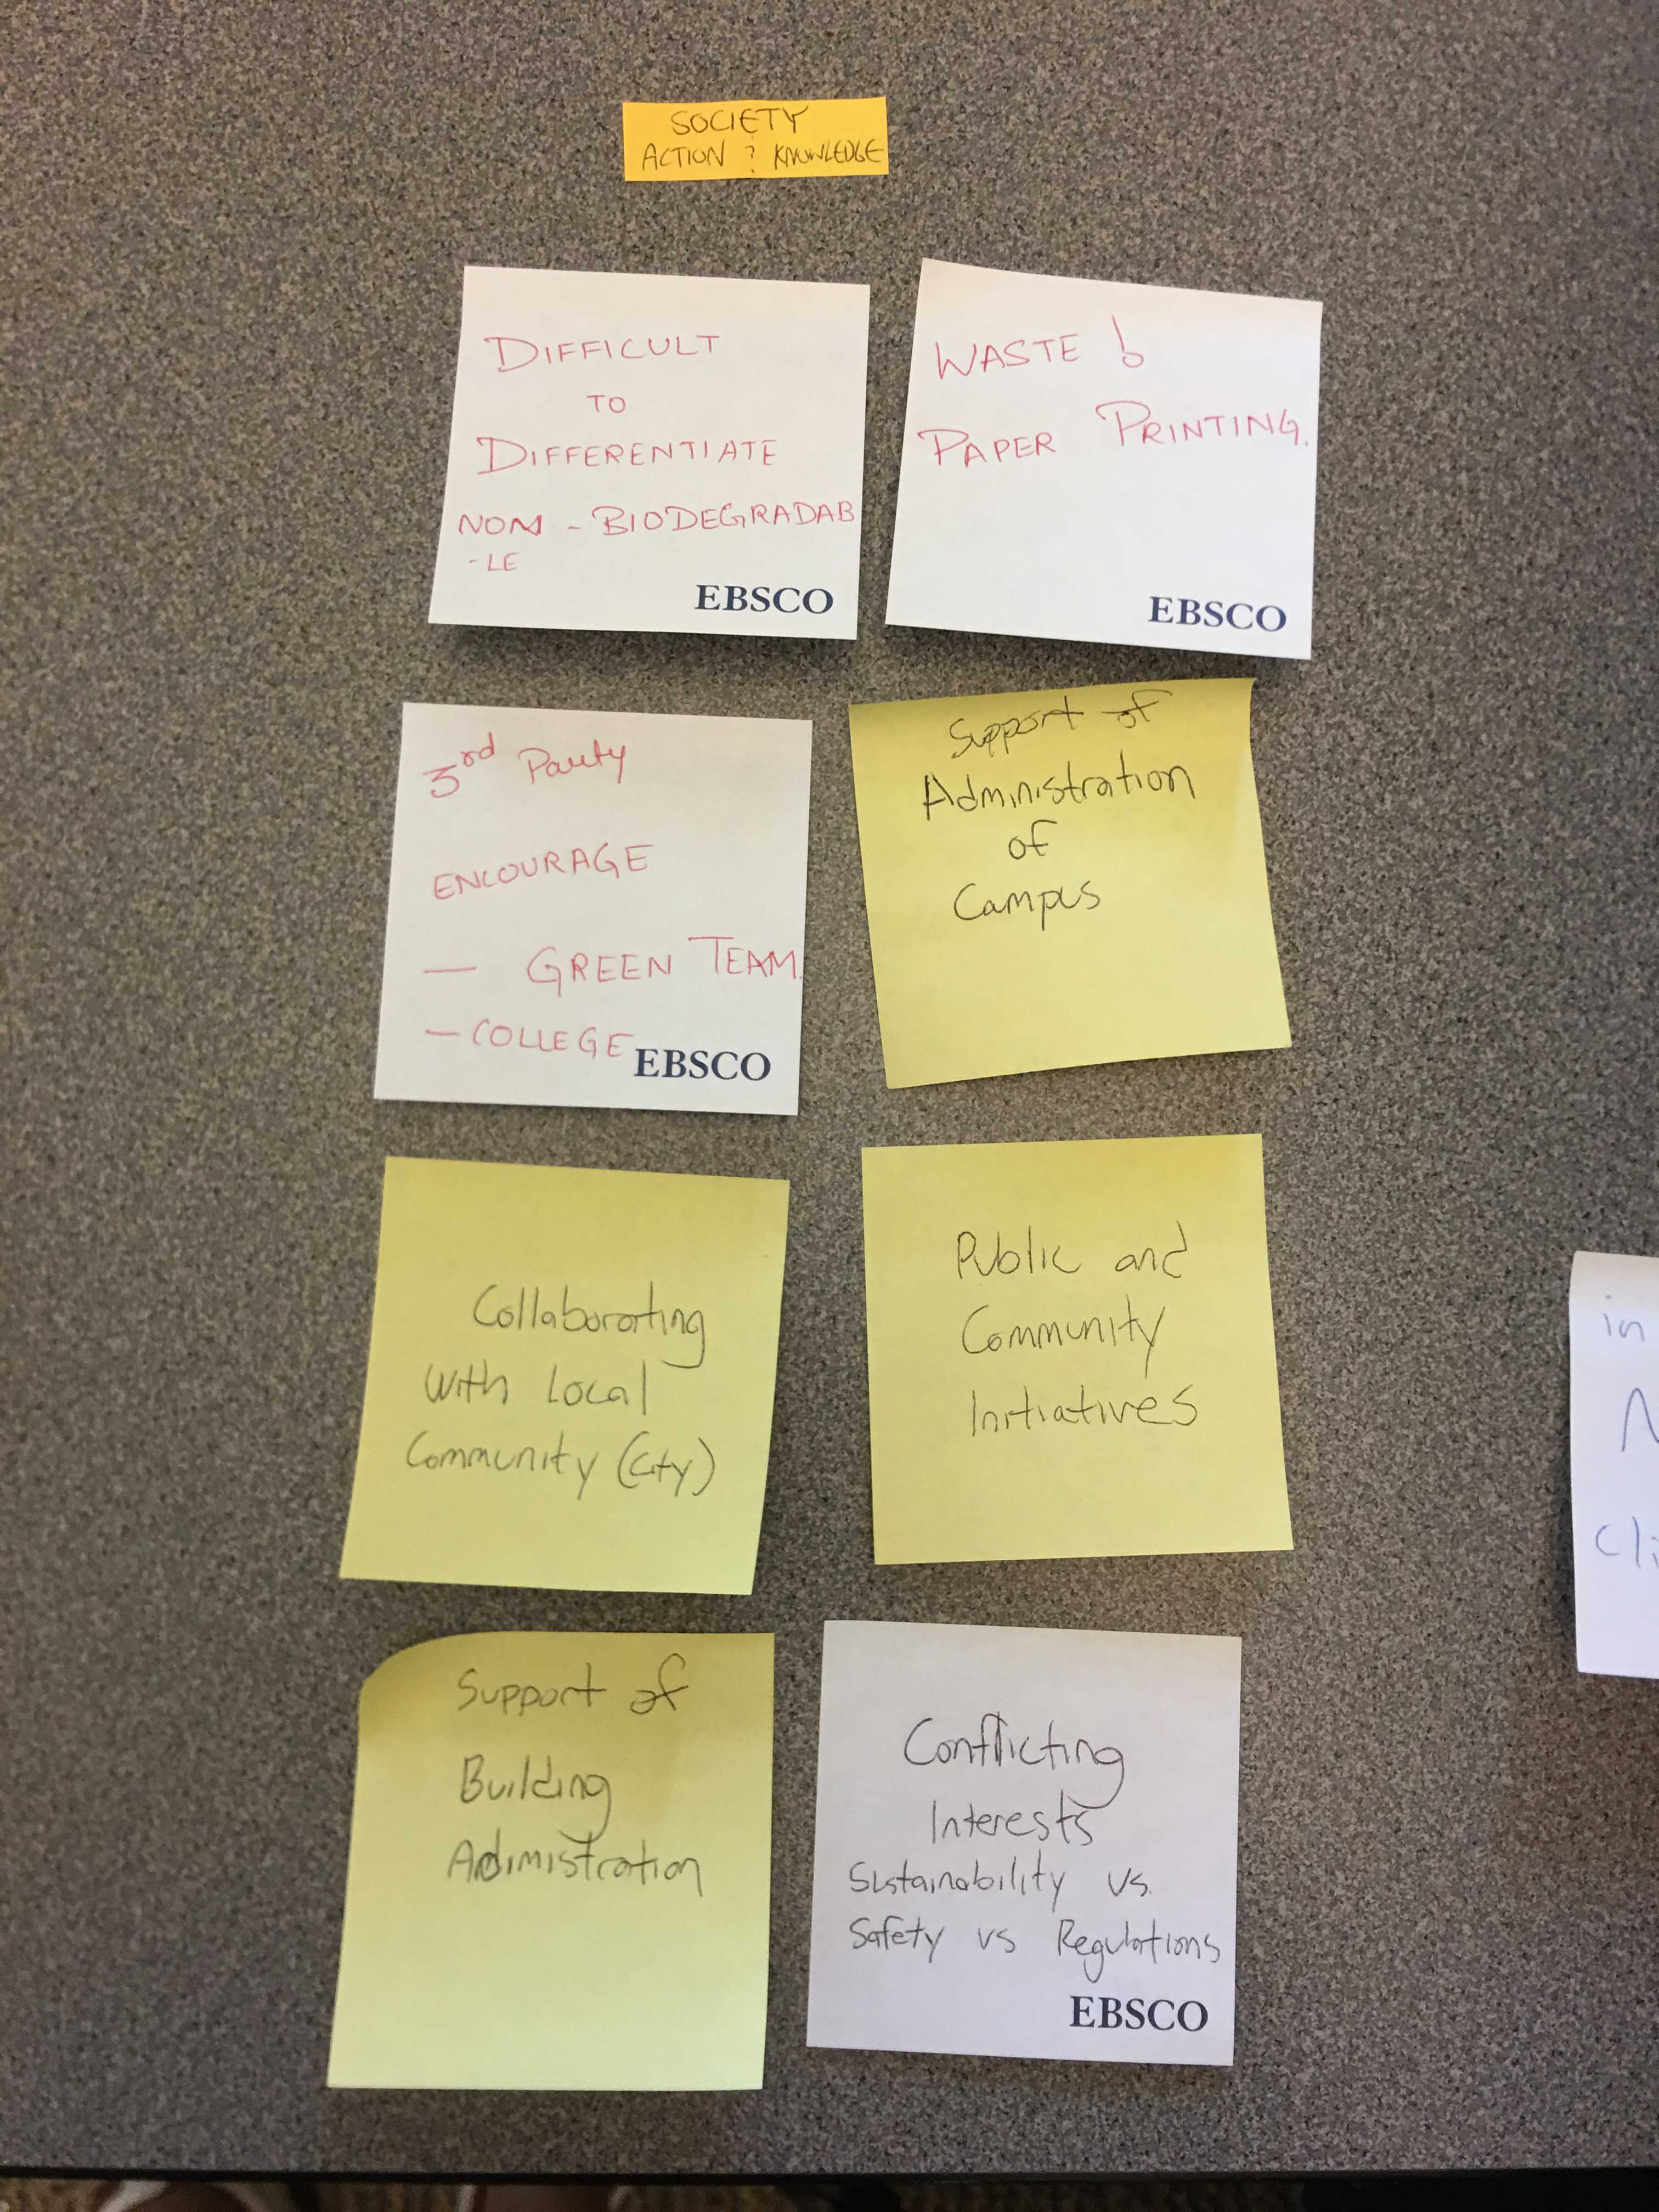 SOCIETY
ACTION ? KNOWLEDGE
DIFFICULT
TO
DIFFERENTIATE
NON - BIODEGRADAB
- LE
EBSCO
WASTE !
PAPER PRINTING.
EBSCO
3rd Party
ENCOURAGE
— GREEN TEAM.
— COLLEGE
EBSCO
Support of
Administration
of
Campus
Collaborating
With Local
Community (City)
Public and
Community
Initiatives
Support of
Building
Adimistration
Conflicting
Interests
Sustainability vs.
Safety vs Regulations
EBSCO
in
N
cli